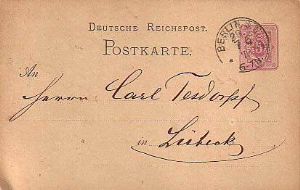 DEUTSCHE REICHSPOST.
POSTKARTE.
BERLIN
An
Herrn Carl Tesdorpf
in Lübeck